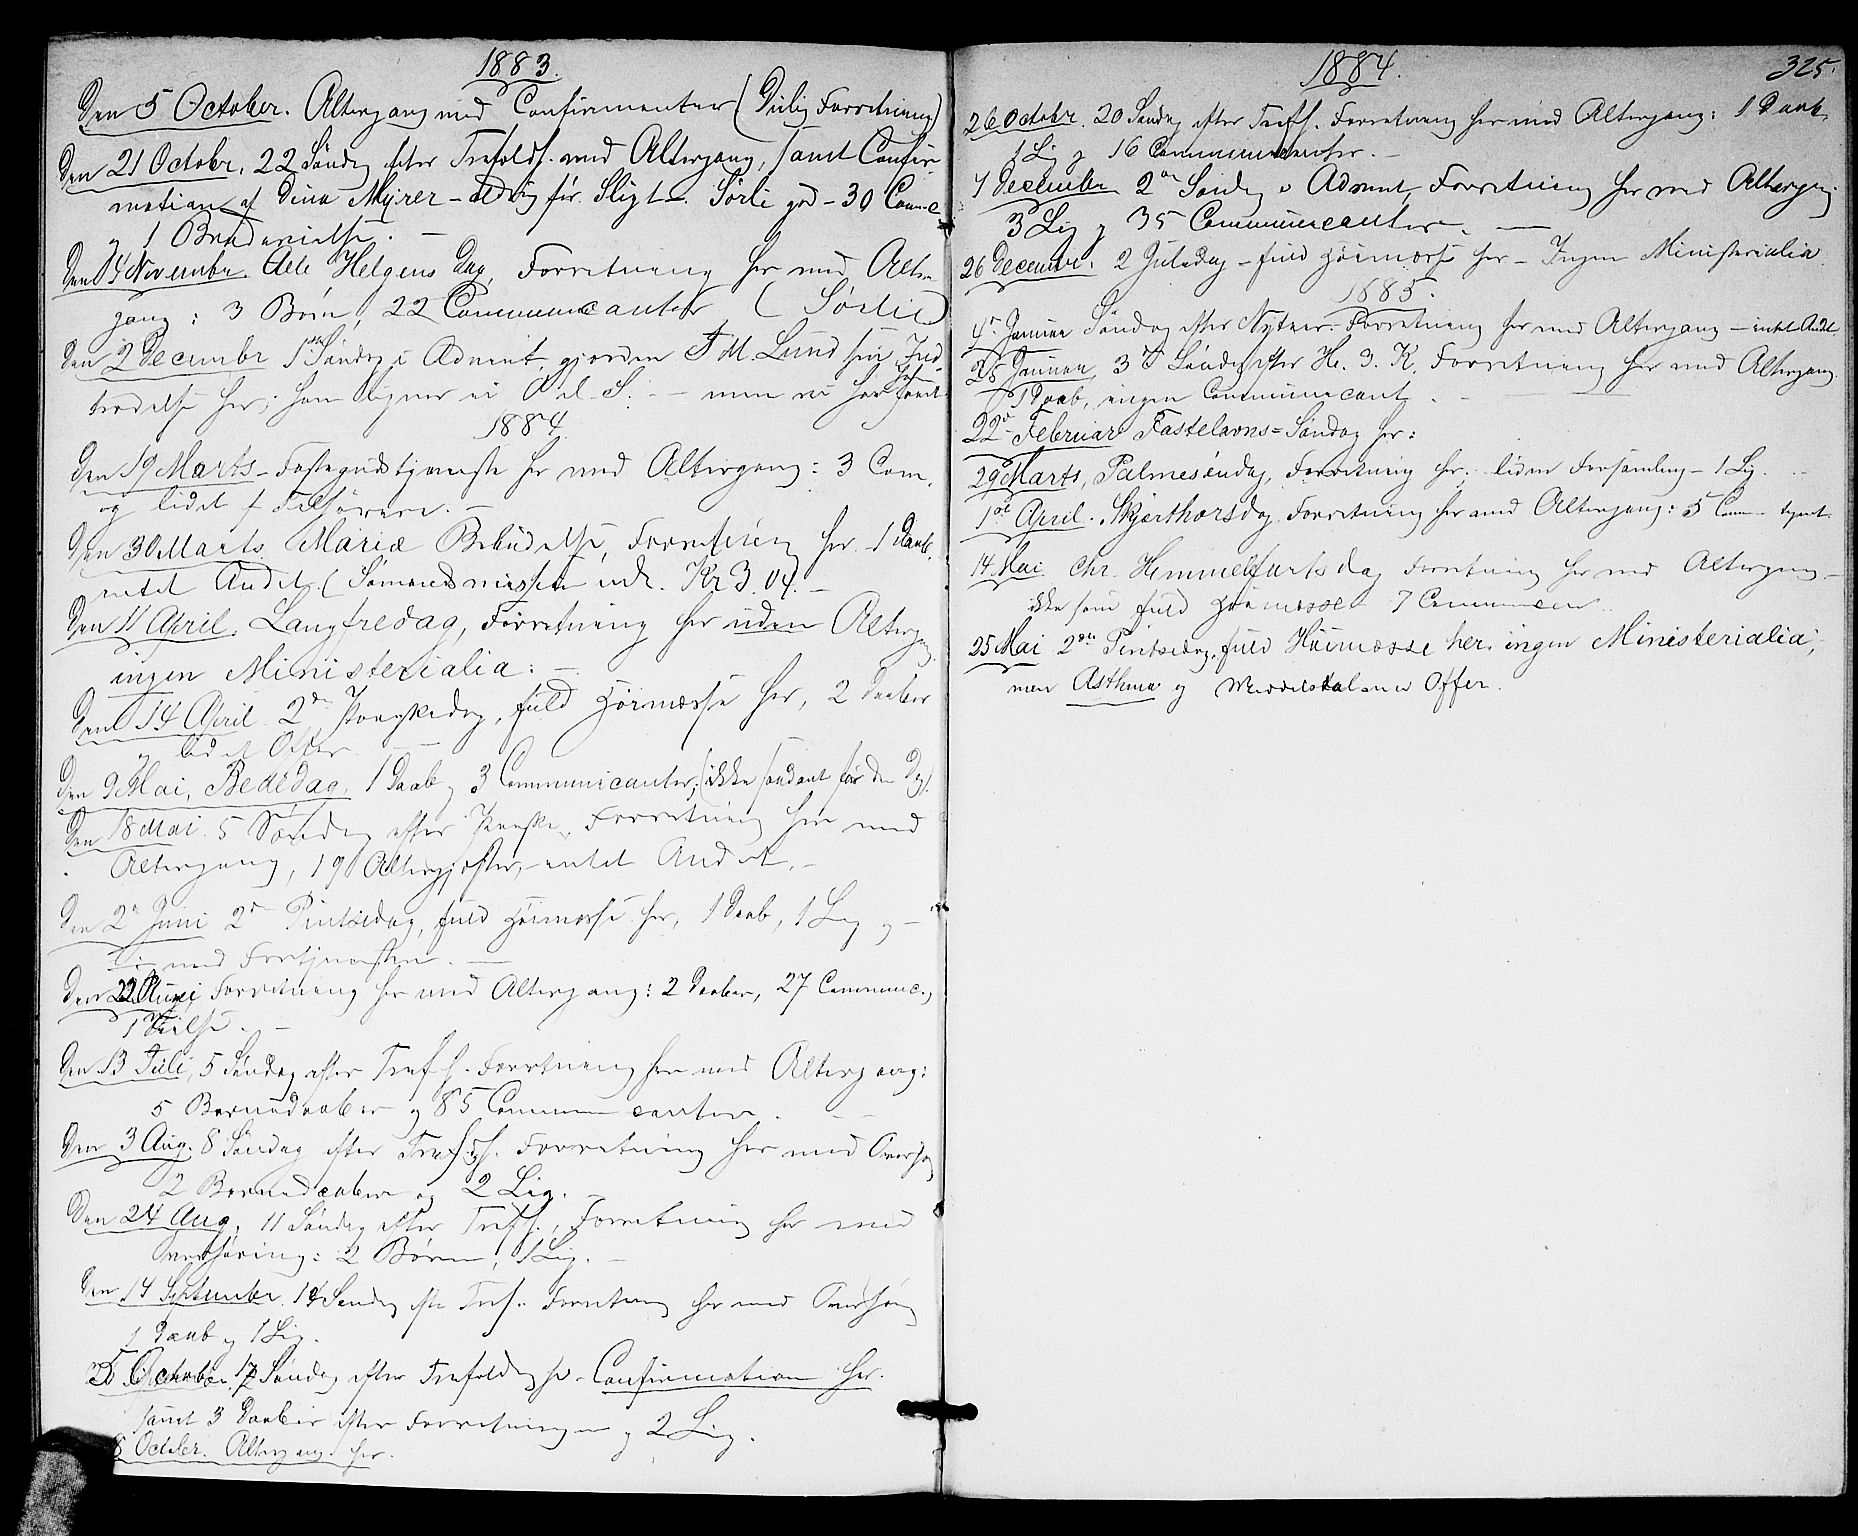 1883.
Den 5 October. Altergang med Confirmenter (Deilig Forretning)
Den 21 Octobr. 22 Søndag efter Trefoldh. med Altergang, samt Confir
mation af Dina Myrer - aldrig før Sligt - Sørli god - 30 Com
og 1 Brudevielse. -
Den 4 Novembr. Alle Helgens Dag, Forretning her med Alter
gang: 3 Børn, 22 Communicanter (Sørlie)
Den 2 Decembr 1ste Søndag i Advent, gjorde J M. Lund sin Ind-
trædelse her; han ligner ei O. S. - men
1884
Den 19 Marts - Fastegudstjeneste her med Altergang: 3 Com.
og lidet af Tilhørere. -
Den 30 Marts. Mariæ Bebudelse, Forretning her. 1 Daab.
intet Andet. (Sømandsmissen indk. Kr 3.04. -
Den 11 April. Langfredag, Forretning her uden Altergang
ingen Ministerialia. -
Den 14 April. 2den Paaskedag, fuld Høimesse her, 2 Daaber
og lidet Offer
Den 9 Mai, Bededag. 1 Daab og 3 Communicanter, (ikke saadant før den Dag).
Den 18 Mai. 5 Søndag efter Paaske, Forretning her med
Altergang, 19 Altergjæster, - intet Andet. -
Den 2den Juni 2den Pintsedag, fuld Høimesse her, 1 Daab, 1 Lig og -
med Fortjenesten. -
Den 22 Juni, Forretning her med Altergang: 2 Daaber, 27 Communic.,
1 Vielse. -
Den 13 Juli, 5 Søndag efter Trefh. Forretning her med Altergang:
5 Barnedaaber og 85 Communicanter. -
Den 3 Aug. 8 Søndag efter Trefh. Forretning her med Overhø
2 Barnedaaber og 2 Lig. -
Den 24 Aug. 11 Søndag efter Trefh., Forretning her med
Overhøring: 2 Børn, 1 Lig. -
Den 14 September. 14 Søndag efter Tref. Forretning her med Overhøring
1 Daab og 1 Lig.
5 October. 17 Søndag efter Trefoldigh. - Confirmation her.
samt 3 Daaber efter Forretningen og 2 Lig.
8 Octobr. Altergang her.
1884.
325.
26 Octobr. 20 Søndag efter Trefh. Forretning her med Altergang: 1 Daab,
1 Lig og 16 Communicanter. -
7 December 2den Søndag i Advent, Forretning her med Altergang.
3 Lig og 35 Communicanter. -
26 December. 2 Juledag - fuld Høimesse her - Ingen Ministerialia.
1885.
4de Januar Søndag efter Nytaar. Forretning her med Altergang - intet Andet.
25 Januar 3de Søndag efter He. 3. K. Forretning her med Altergang.
1 Daab, ingen Communicant. -
22de Februar Fastelavns=Søndag her:
29 Marts, Palmesøndag, Forretning her. liden Forsamling - 1 Lig
1ste April. Skjærthorsdag. Forretning her med Altergang: 5 Com
14 Mai Chr. Himmelfartsdag Forretning her med Altergang -
ikke som fuld Høimesse 7 Communican
25 Mai 2den Pintsedag, fuld Høimesse her. ingen Ministerialia,
men Asthma og Offer.